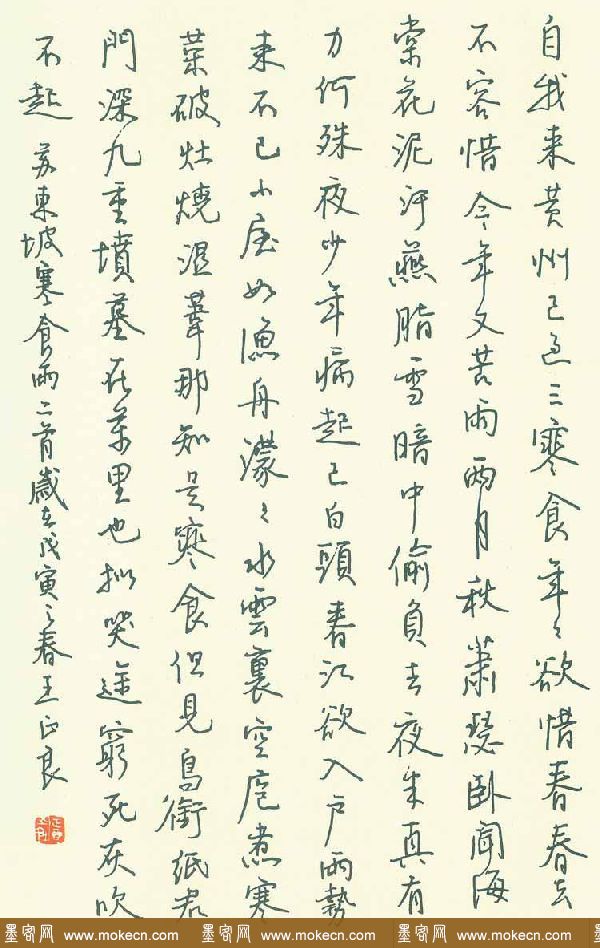 自我来黄州已过三寒食年々欲惜春春去
不容惜今年又苦雨两月秋萧瑟卧闻海
棠花泥汙燕脂雪暗中偷负去夜半真有
力何殊夜少年病起已白頭春江欲入户雨勢
来不已小屋如漁舟濛々水雲裏空庖煮寒
菜破灶燒湿葦那知是寒食但見烏銜纸君
門深九重墳墓在萬里也拟哭途窮死灰吹
不起 苏東坡寒食雨二首歲在戊寅之春王正良
墨客网 www.mokecn.com 墨客网 www.mokecn.com 墨客网 www.mokecn.com